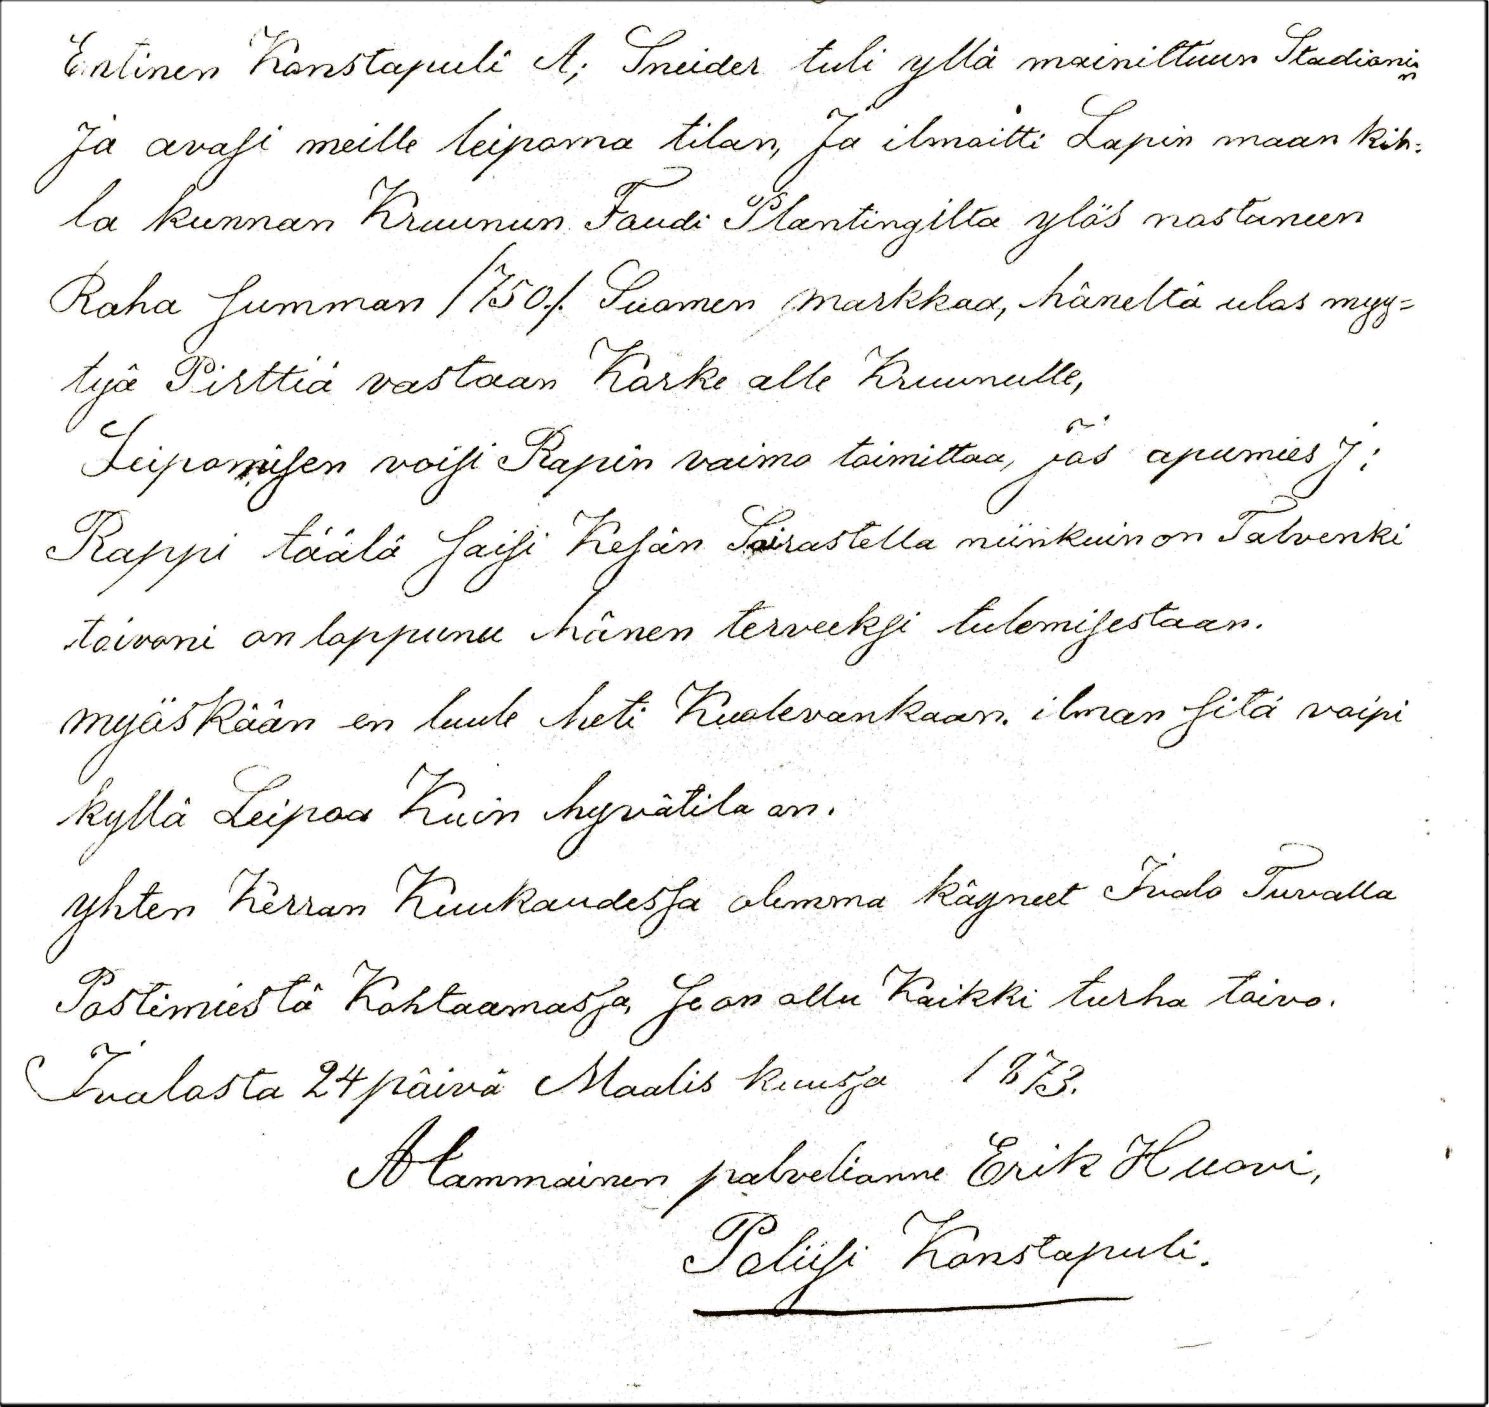 Entinen Konstapuli A; Sneider tuli yllä mainittuun Stadionin
Ja avasi meille leipoma tilan, Ja ilmoitti Lapin maan kih=
la kunnan Kruunun Foudi Plantingilta ylös nostaneen
Raha Summan /750./. Suomen markkaa, häneltä ulos myy=
tyä Pirttiä vastaan Korke alle Kruunulle,
Leipomisen voisi Rapin vaimo toimittaa, jos apumies J:
Rappi täälä Saisi Kesän Sairastella niinkuin on Talvenki
toivoni on loppunu hänen terveeksi tulemisestaan.
myöskään en luule heti Kuolevankaan. ilman sitä voipi
kyllä Leipoa Kuin hyvätila on.
yhten Kerran Kuukaudessa olemma käyneet Ivalo Tuvalla
Postimiestä Kohtaamassa, Se on ollu Kaikki turha toivo.
Ivalosta 24 päivä Maalis kuussa 1873.
Alammainen palvelianne Erik Huovi,
Poliisi Konstapuli.